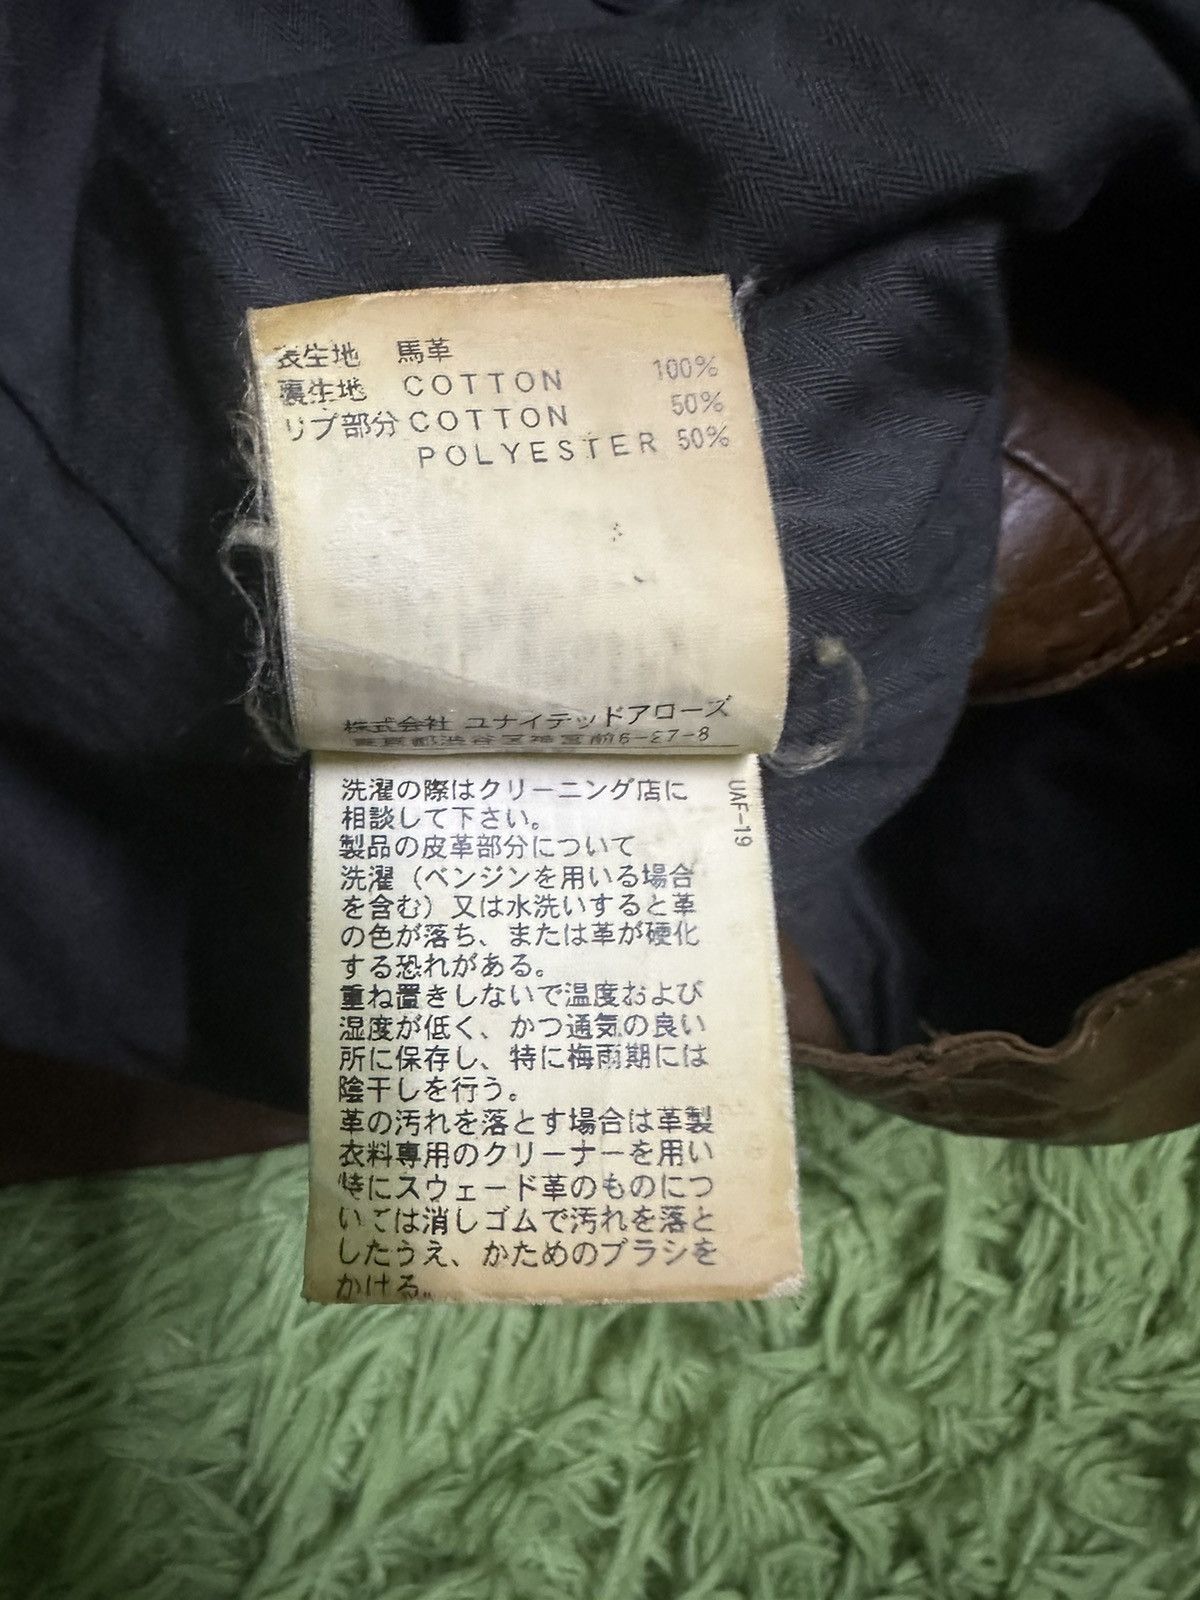 表生地 馬革
裏生地 COTTON 100%
リブ部分 COTTON 50%
POLYESTER 50%
株式会社 ユナイテッドアローズ
東京都渋谷区神宮前6-27-8
UAF-19
洗濯の際はクリーニング店に
相談して下さい。
製品の皮革部分について
洗濯（ベンジンを用いる場合
を含む）又は水洗いすると革
の色が落ち、または革が硬化
する恐れがある。
重ね置きしないで温度および
湿度が低く、かつ通気の良い
所に保存し、特に梅雨期には
陰干しを行う。
革の汚れを落とす場合は革製
衣料専用のクリーナーを用い
特にスウェード革のものにつ
いては消しゴムで汚れを落と
したうえ、かためのブラシを
かける。